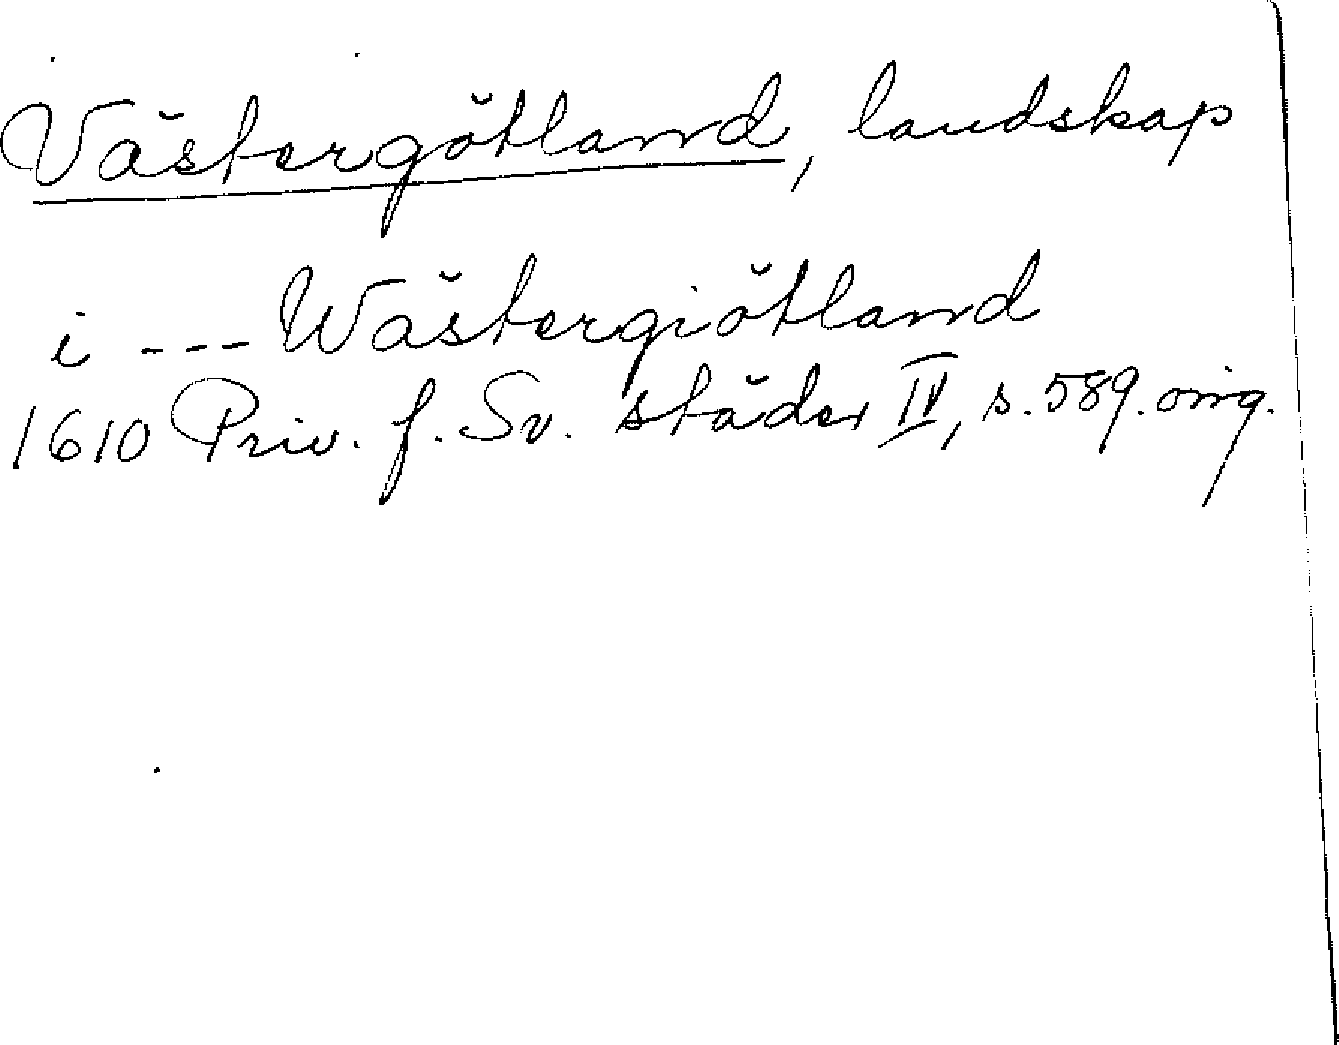 Västergötland, landskap
i --- Wästergiötland
1610 Priv. f. Sv. städer IV, s. 589. orig.